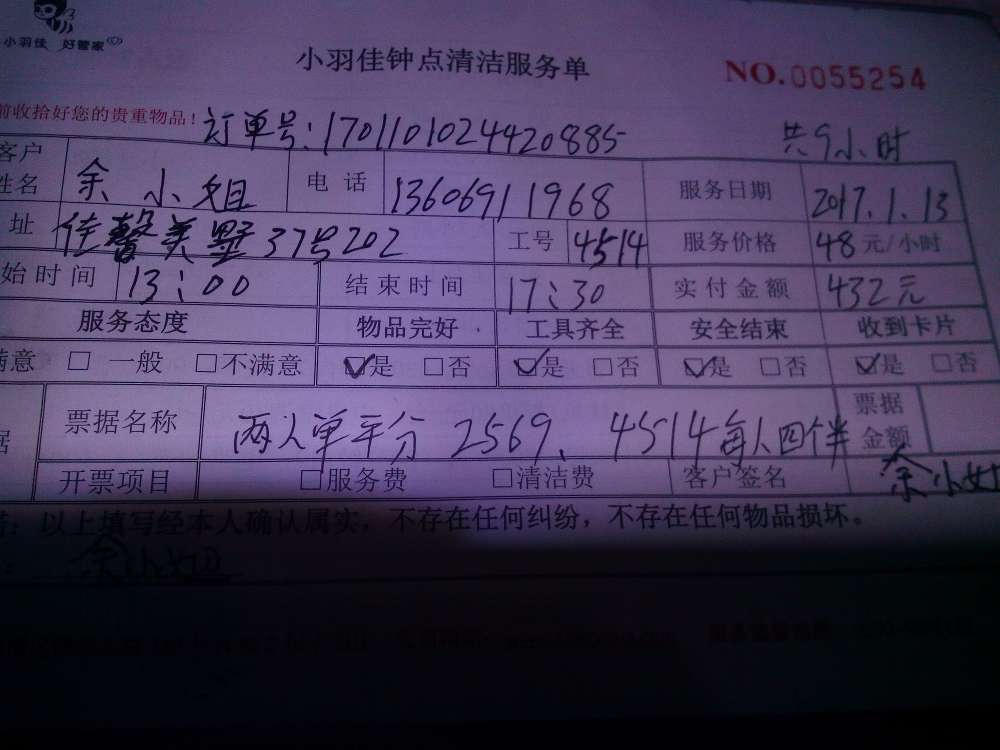 小羽佳 好管家
小羽佳钟点清洁服务单 NO.0055254
前收拾好您的贵重物品! 订单号:1701101024420885 共9小时
客户姓名 余小姐 电话 13606911968 服务日期 2017.1.13
址 佳馨美墅37号202 工号 4514 服务价格 48元/小时
始时间 13:00 结束时间 17:30 实付金额 432元
服务态度 物品完好 工具齐全 安全结束 收到卡片
满意 □ 一般 □不满意 ☑是 □否 ☑是 □否 ☑是 □否 ☑是 □否
据 票据名称 两人单平分 2569、4514每人四伴 票据金额
开票项目 □服务费 □清洁费 客户签名 余小姐
以上填写经本人确认属实,不存在任何纠纷,不存在任何物品损坏。
余小姐